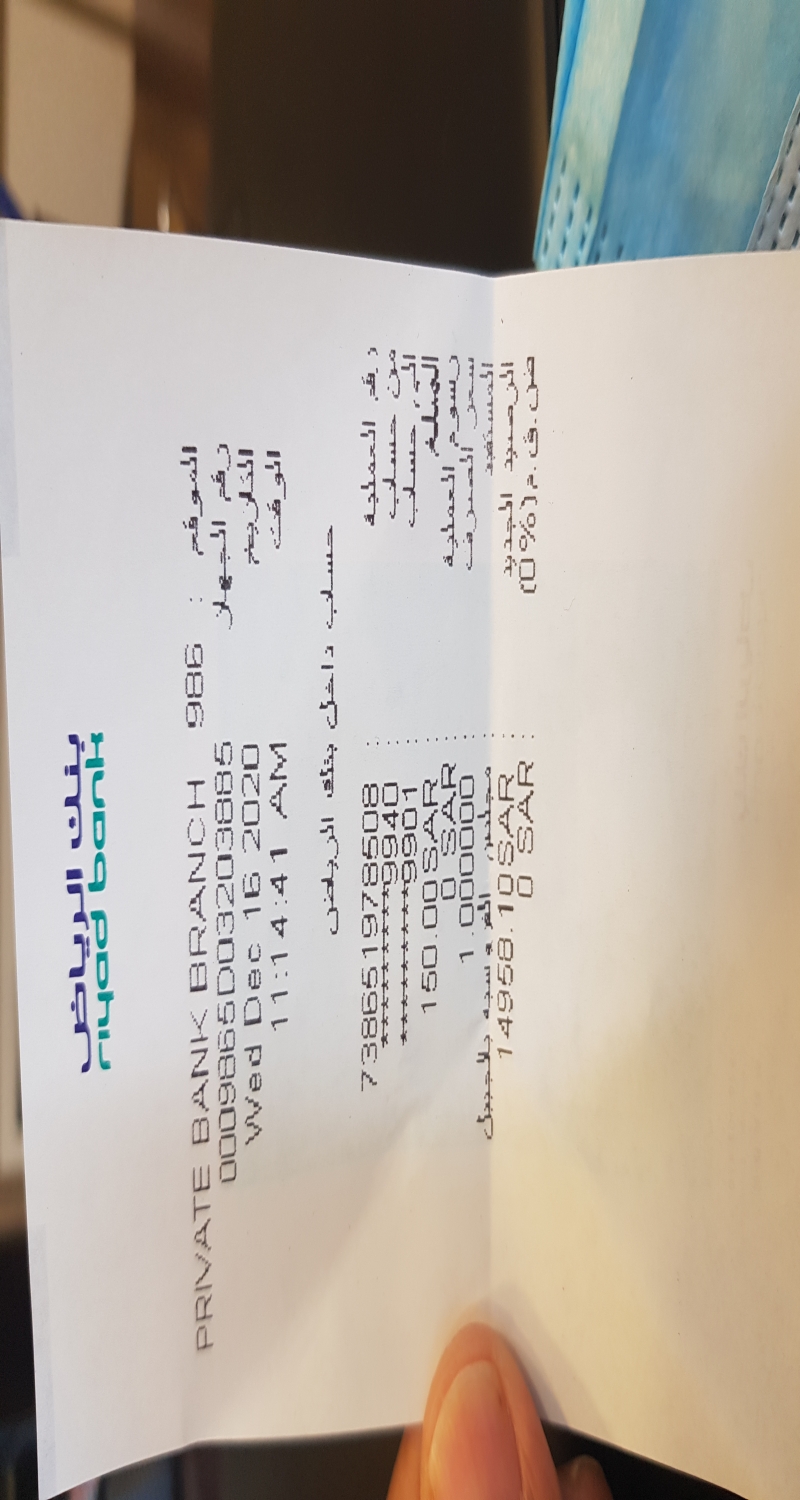 بنك الرياض
riyad bank
الموقع : PRIVATE BANK BRANCH 986
رقم الجهاز 0009865D03203885
التاريخ Wed Dec 16 2020
الوقت 11:14:41 AM
حساب داخل بنك الرياض
رقم العملية : 738651978508
من حساب : ***********9940
الى حساب : ***********9901
المبلغ : 150.00SAR
رسوم العملية : 0 SAR
سعر الصرف : 1.000000
المستفيد : بالجبيل
الرصيد الجديد : 14958.10SAR
ض.ق.م(0%) : 0 SAR